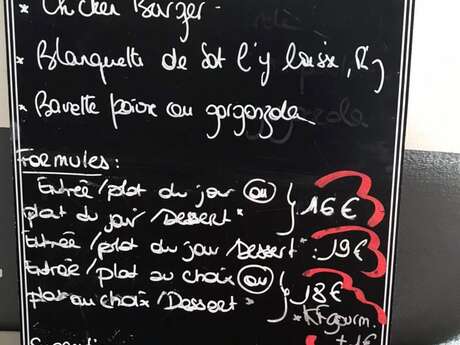 * Chicken Burger
* Blanquette de Sot l'y laisse, Riz
* Bavette poivre ou gorgonzola
Formules :
Entrée/plat du jour ou
plat du jour/Dessert* } 16€
Entrée/plat du jour/Dessert* : 19€
Entrée/plat au choix ou
plat au choix/Dessert } 18€
+ 1€